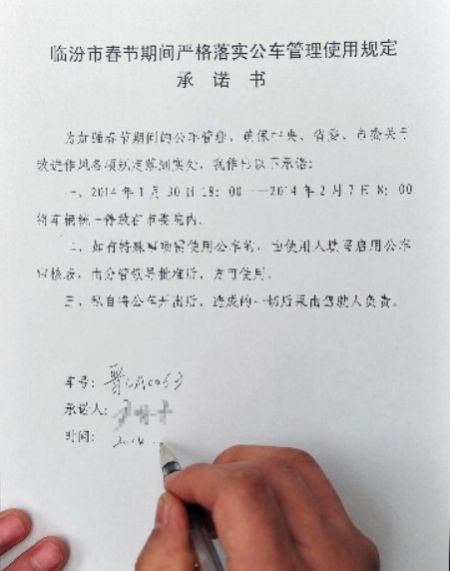 临汾市春节期间严格落实公车管理使用规定
承 诺 书
为加强春节期间的公车管理，确保中央、省委、市委关于
改进作风各项规定落到实处，我作出以下承诺：
一、2014年1月30日18：00——2014年2月7日8：00
将车辆统一停放在市委院内。
二、如有特殊事项需使用公车的，由使用人填写启用公车
审核表，由分管领导批准后，方可使用。
三、私自将公车开出后，造成的一切后果由驾驶人负责。
车号：
承诺人：
时间：2014.